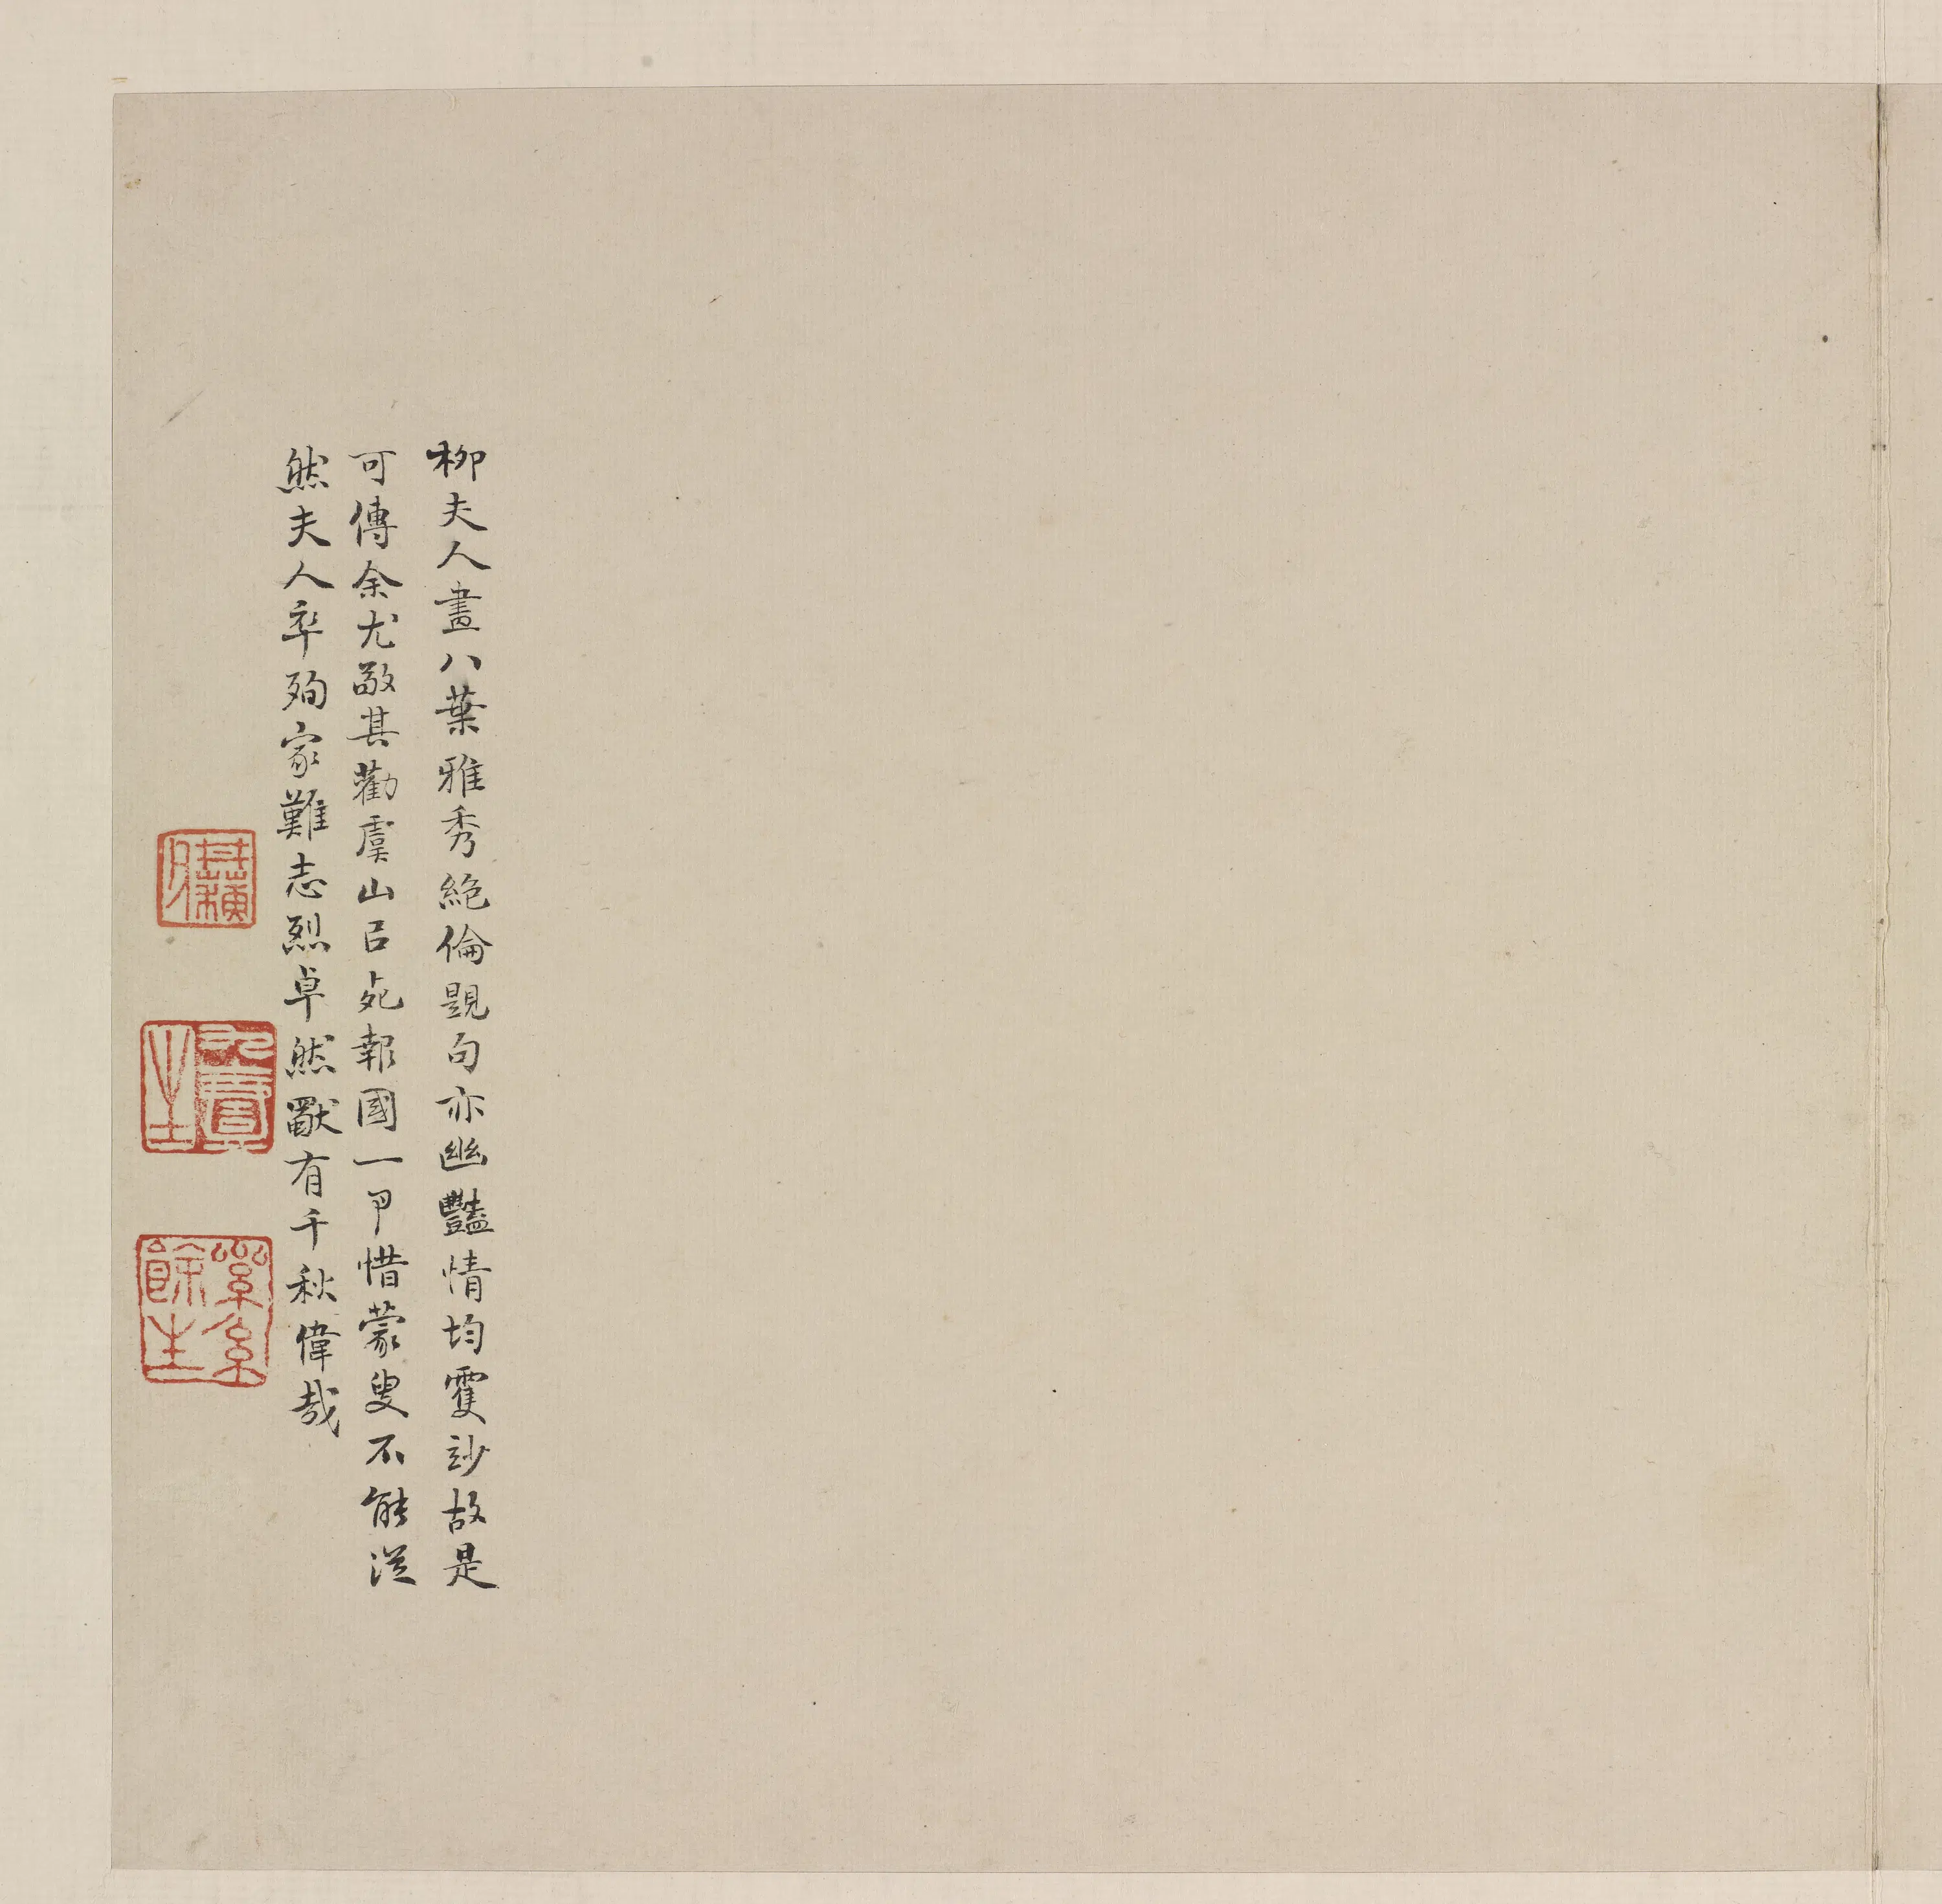 柳夫人畫八葉雅秀絕倫題句亦幽豔情均雙妙故是
可傳余尤敬其勸虞山㠯死報國一事惜蒙叟不能從
然夫人卒殉家難志烈卓然獸有千秋偉哉
餘生